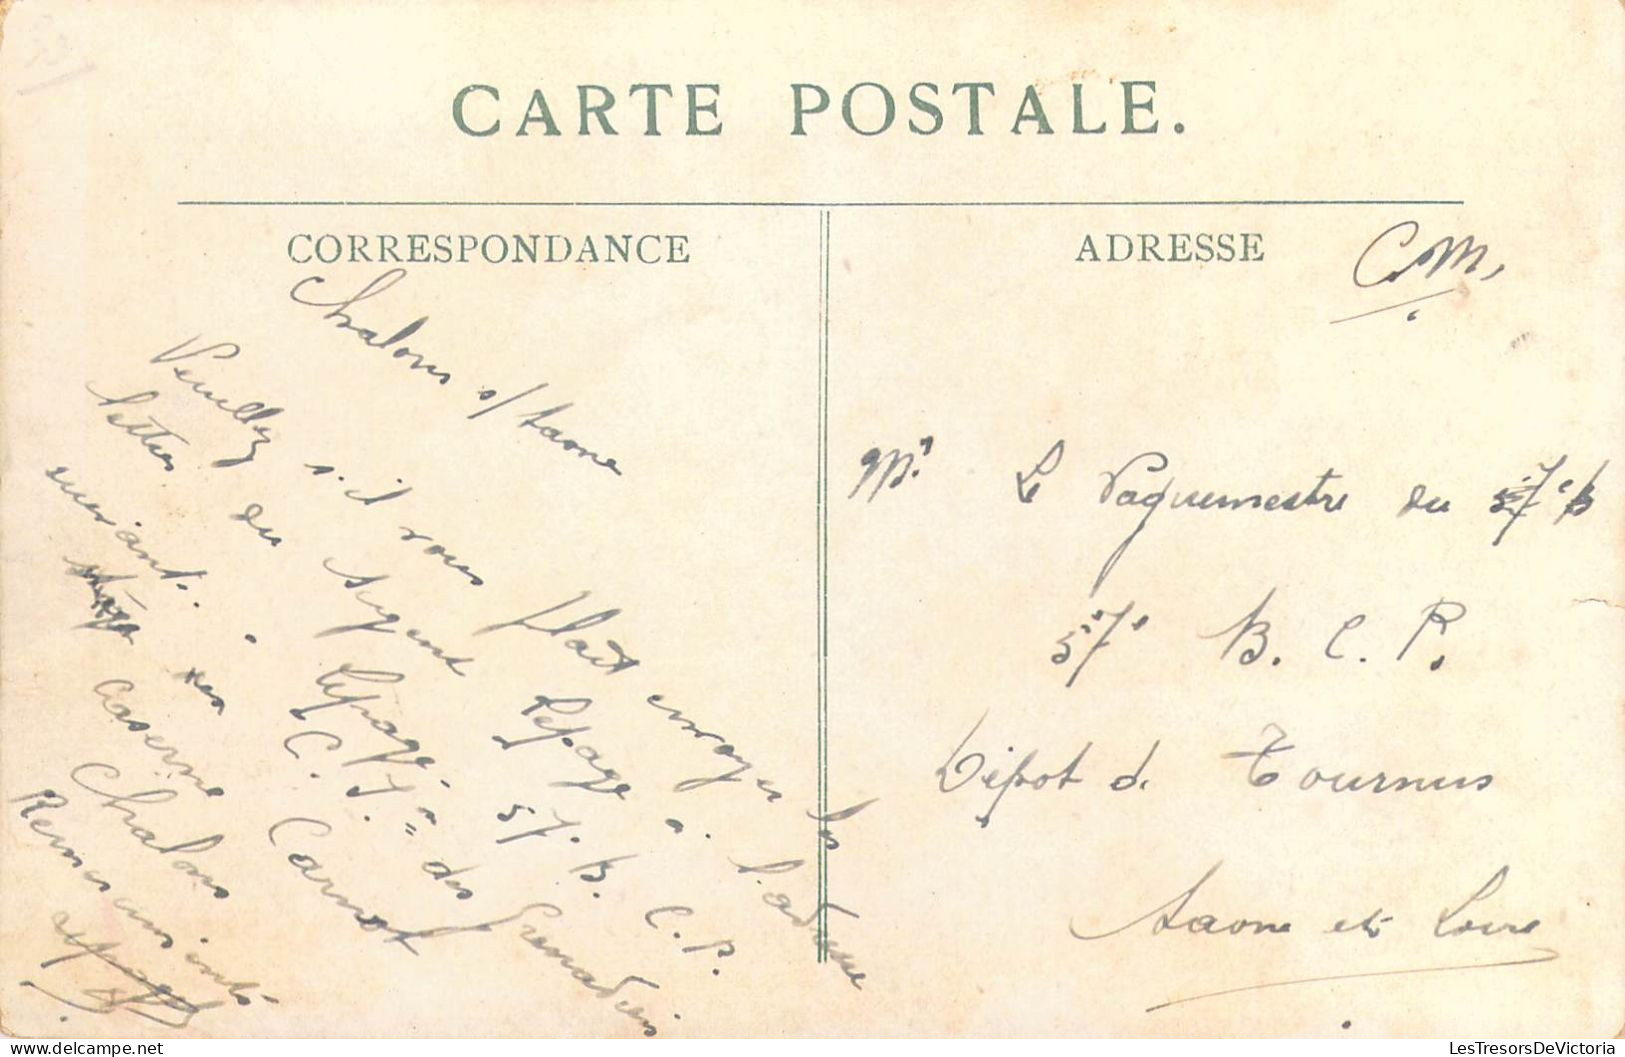 CARTE POSTALE.
CORRESPONDANCE
Chalons s/ Saone
Veuillez s. il vous plaît envoyer les
lettres du Sergent Lepage a. l'adresse
suivant. . Lepage. 57. B. C. P.
C. I. des Grenadiers
Caserne Carnot
Chalons
Remerciments
Lepage
ADRESSE
C. M.
Mr. Le Vaguemestre du 57e B
57e B. C. P.
Dépot de Tournus
Saone et Loire
LesTresorsDeVictoria.com